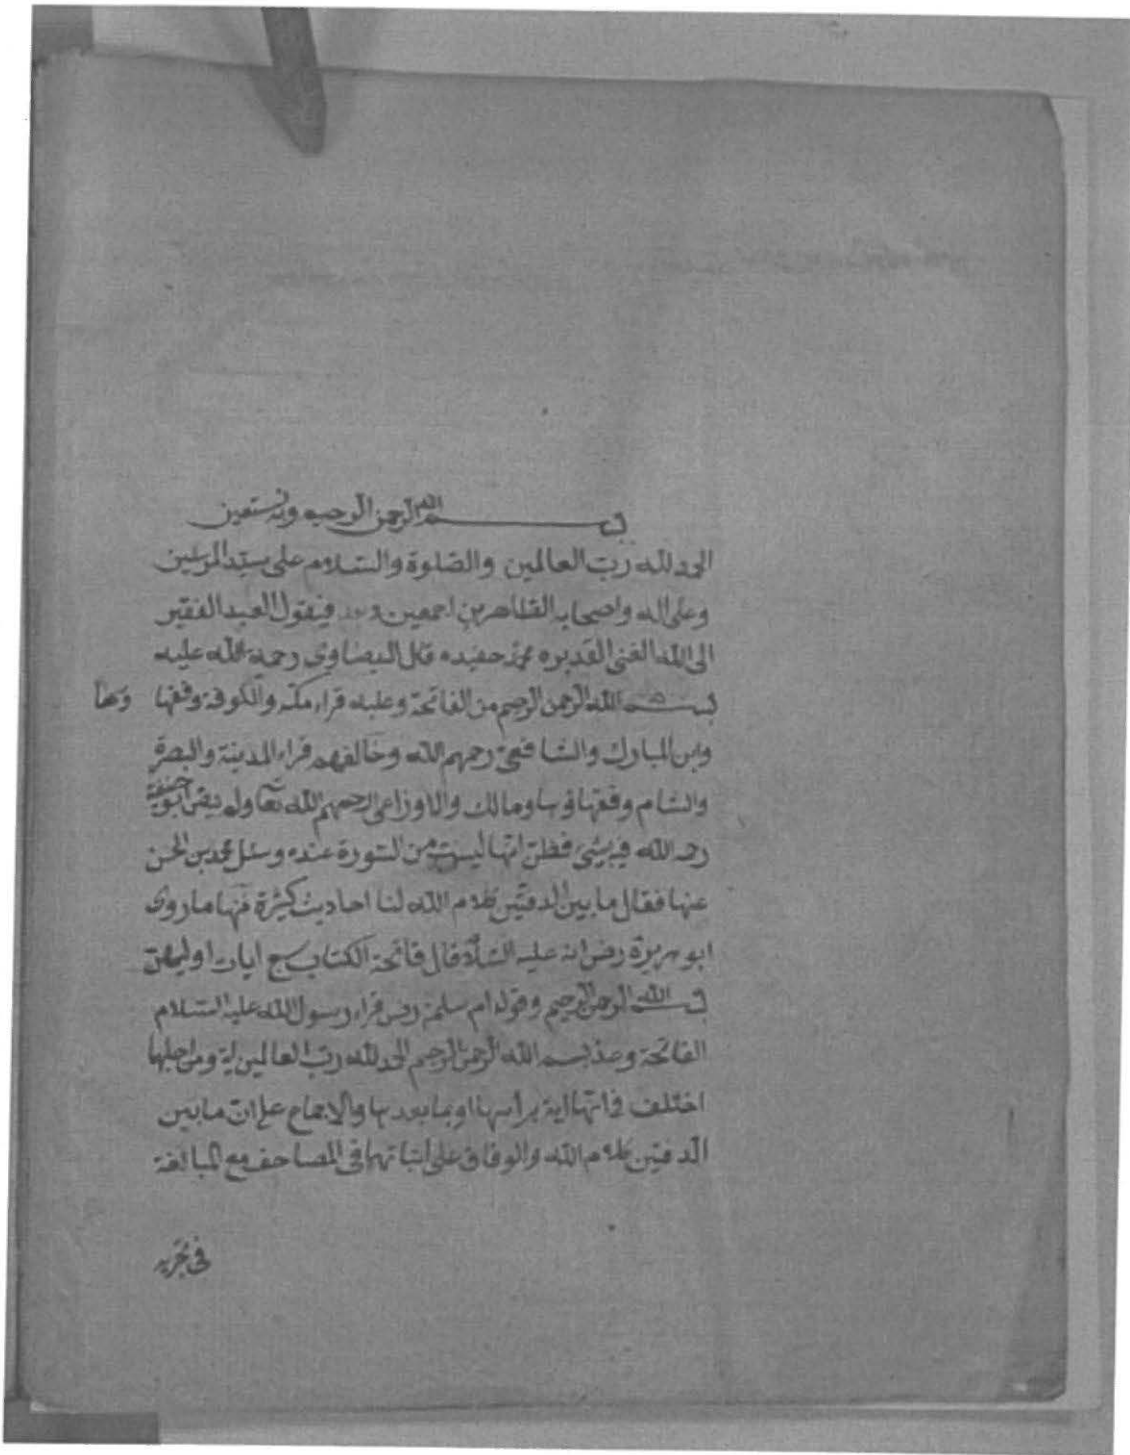 بسم الله الرحمن الرحيم وبه نستعين
الحمد لله رب العالمين والصلوة والسلام على سيد المرسلين
وعلى اله واصحابه الطاهرين اجمعين وبعد فيقول العبد الفقير
الى الله الغنى القدير محمد حفيده قال البيضاوى رحمة الله عليه
بسم الله الرحمن الرحيم من الفاتحة وعليه قراء مكة والكوفة وفقهاؤهما
وابن المبارك والشافعى رحمهم الله وخالفهم قراء المدينة والبصرة
والشام وفقهاؤها ومالك والاوزاعى رحمهم الله تعا ولم ينص ابو حنيفة
رحمه الله فيه بشئ فظن انها ليست من السورة عنده وسئل محمد بن الحسن
عنها فقال ما بين الدفتين كلام الله لنا احاديث كثيرة منها ما روى
ابو هريرة رضى انه عليه السلام قال فاتحة الكتاب سبع ايات اوليهن
بسم الله الرحمن الرحيم وقول ام سلمة رضى قراء رسول الله عليه السلام
الفاتحة وعد بسم الله الرحمن الرحيم الحمد لله رب العالمين اية ومن اجلها
اختلف فى انها اية برأسها او بما بعدها والاجماع على ان ما بين
الدفتين كلام الله والوفاق على اثباتها فى المصاحف مع المبالغة
فى تجريد